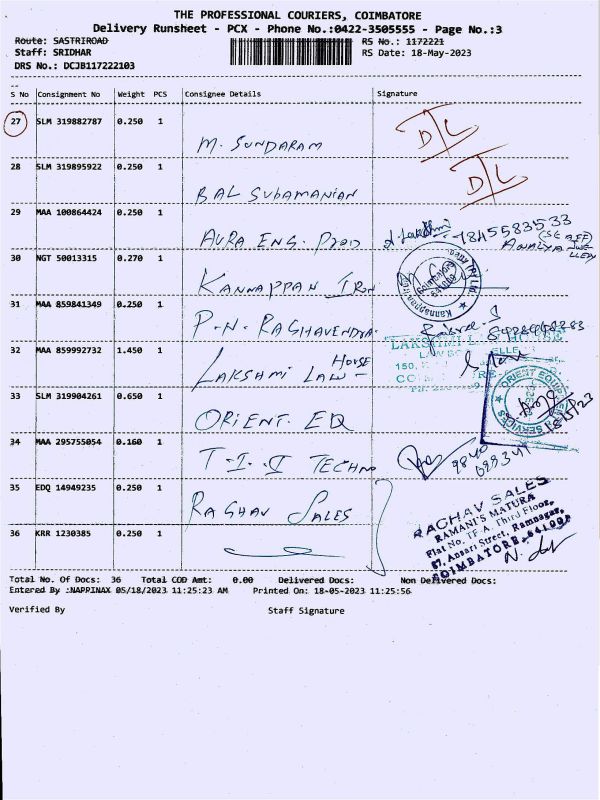 THE PROFESSIONAL COURIERS, COIMBATORE
Delivery Runsheet - PCX - Phone No.:0422-3505555 - Page No.:3
Route: SASTRIROAD RS No.: 1172221
Staff: SRIDHAR RS Date: 18-May-2023
DRS No.: DCJB117222103
S No Consignment No Weight PCS Consignee Details Signature
27 SLM 319882787 0.250 1
M. SUNDARAM D/L
28 SLM 319895922 0.250 1
BAL SUBAMANIAN D/L
29 MAA 100864424 0.250 1
AURA ENG. PROD
30 NGT 50013315 0.270 1
KANNAPPAN IRON
31 MAA 859841349 0.250 1
P.N. RAGHAVENDRA
32 MAA 859992732 1.450 1
LAKSHMI LAW HOUSE
33 SLM 319904261 0.650 1
ORIENT. EQ
34 MAA 295755054 0.160 1
T.I.I TECHNO
35 EDQ 14949235 0.250 1
RAGHAV SALES
RAGHAV SALES
RAMANI'S MATURA
Flat No. TF-A, Third Floor,
67, Ansari Street, Ramnagar,
COIMBATORE-641009
36 KRR 1230385 0.250 1
Total No. Of Docs: 36 Total COD Amt: 0.00 Delivered Docs: Non Delivered Docs:
Entered By :NAPRINAX 05/18/2023 11:25:23 AM Printed On: 18-05-2023 11:25:56
Verified By Staff Signature